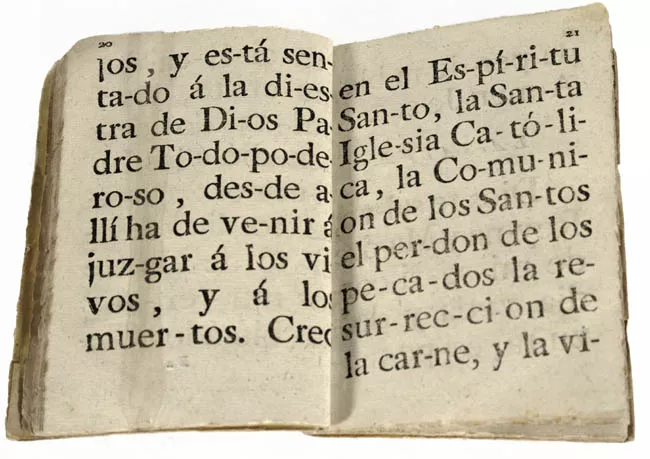 20
los, y es-tá sen-
ta-do á la di-es
tra de Di-os Pa
dre To-do-po-de
ro-so, des-de a
llí ha de ve-nir á
juz-gar á los vi
vos, y á los
muer-tos. Creo
21
en el Es-pí-ri-tu
San-to, la San-ta
Igle-sia Ca-tó-li-
ca, la Co-mu-ni-
on de los San-tos
el per-don de los
pe-ca-dos la re-
sur-rec-ci on de
la car-ne, y la vi-